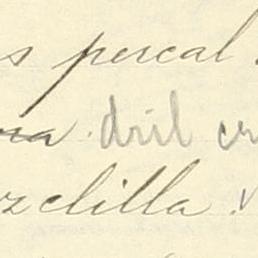 s percal
dril cr
zclilla